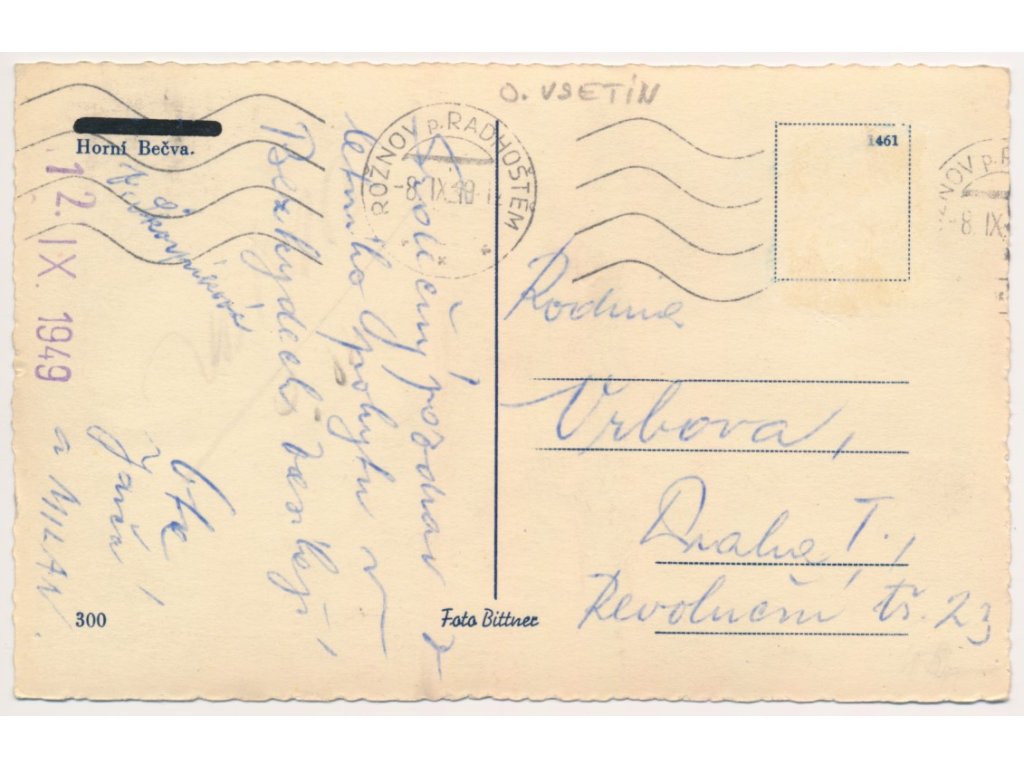 O. VSETÍN
Horní Bečva.
ROŽNOV p. RADHOŠTĚM
-8. IX. 49
1461
ROŽNOV p. R
-8. IX.
12. IX. 1949
Srdečný pozdrav z
letního pobytu v
Bezkydech zasílají
Ota
Jarča,
a MILAN.
Rodina
Vrbova,
Praha I.,
Revoluční tř. 23
300
Foto Bittner